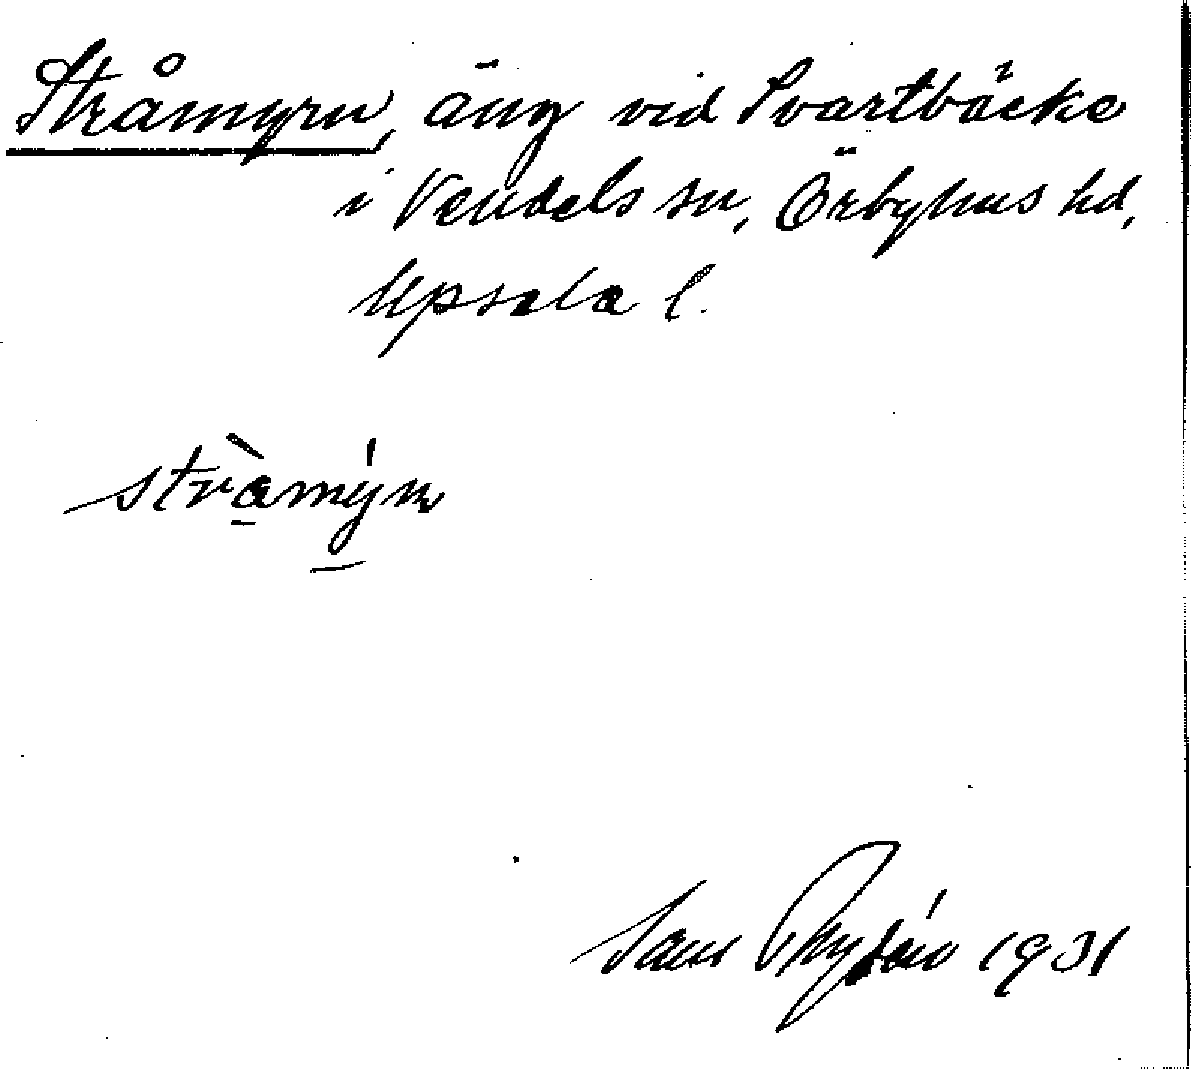 Stråmyrn, äng vid Svartbäcke
i Vendels sn, Örbyhus hd,
Upsala l.
stràmýrn
1931